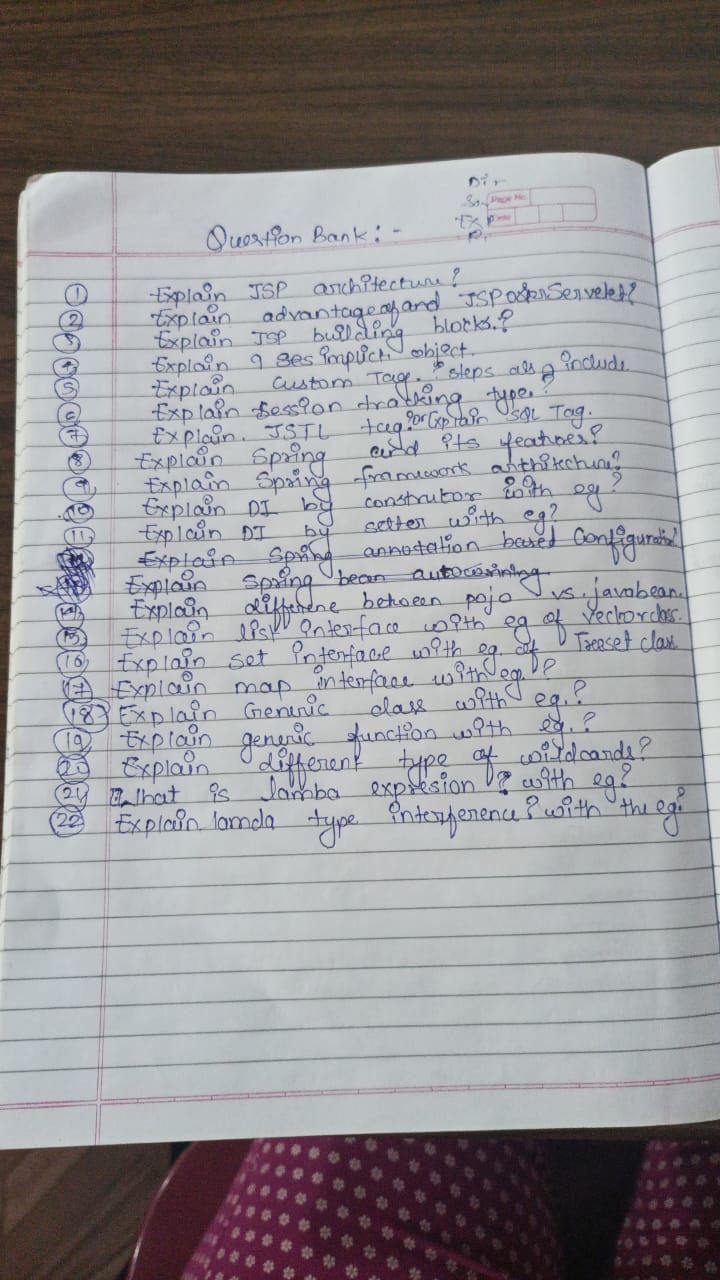 Dir
Page No.
Question Bank:-
① Explain JSP architecture?
② Explain advantage of and JSP over Servelet?
③ Explain JSP building blocks.?
④ Explain 9 JSP implicit object.
⑤ Explain Custom Tag. * steps also include
⑥ Explain Session tracking type.?
⑦ Explain. JSTL tag? or Explain SQL Tag.
⑧ Explain Spring and its features?
⑨ Explain Spring framework architecture?
⑩ Explain DI by construtor with eg?
⑪ Explain DI by setter with eg?
Explain Spring annotation based Configuration
Explain Spring bean autowirining
⑭ Explain differene between pojo vs. javabean.
⑮ Explain list interface with eg of Vector class.
⑯ Explain set interface with eg. of Treeset class
⑰ Explain map interface with eg.?
⑱ Explain Generic class with eg.?
⑲ Explain generic function with eg.?
⑳ Explain different type of wildcards?
㉑ What is lamba expresion? with eg?
㉒ Explain lamda type interference? with the eg?